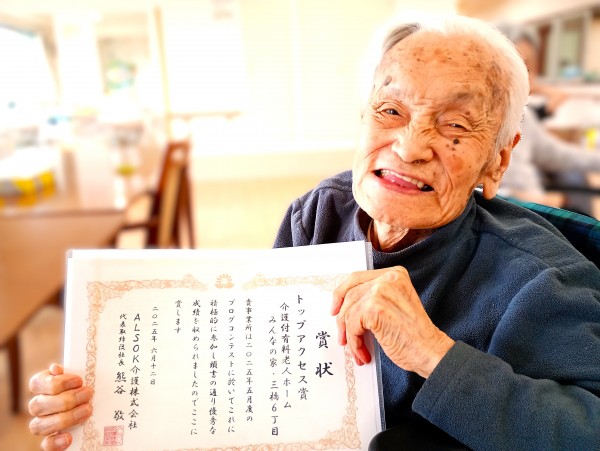 賞状
トップアクセス賞
介護付有料老人ホーム
みんなの家・三橋6丁目
貴事業所は二〇二五年五月度の
ブログコンテストに於いてこれに
積極的に参加し頭書の通り優秀な
成績を収められましたのでここに
賞します
二〇二五年 六月十二日
ALSOK介護株式会社
代表取締役社長 熊谷 敬